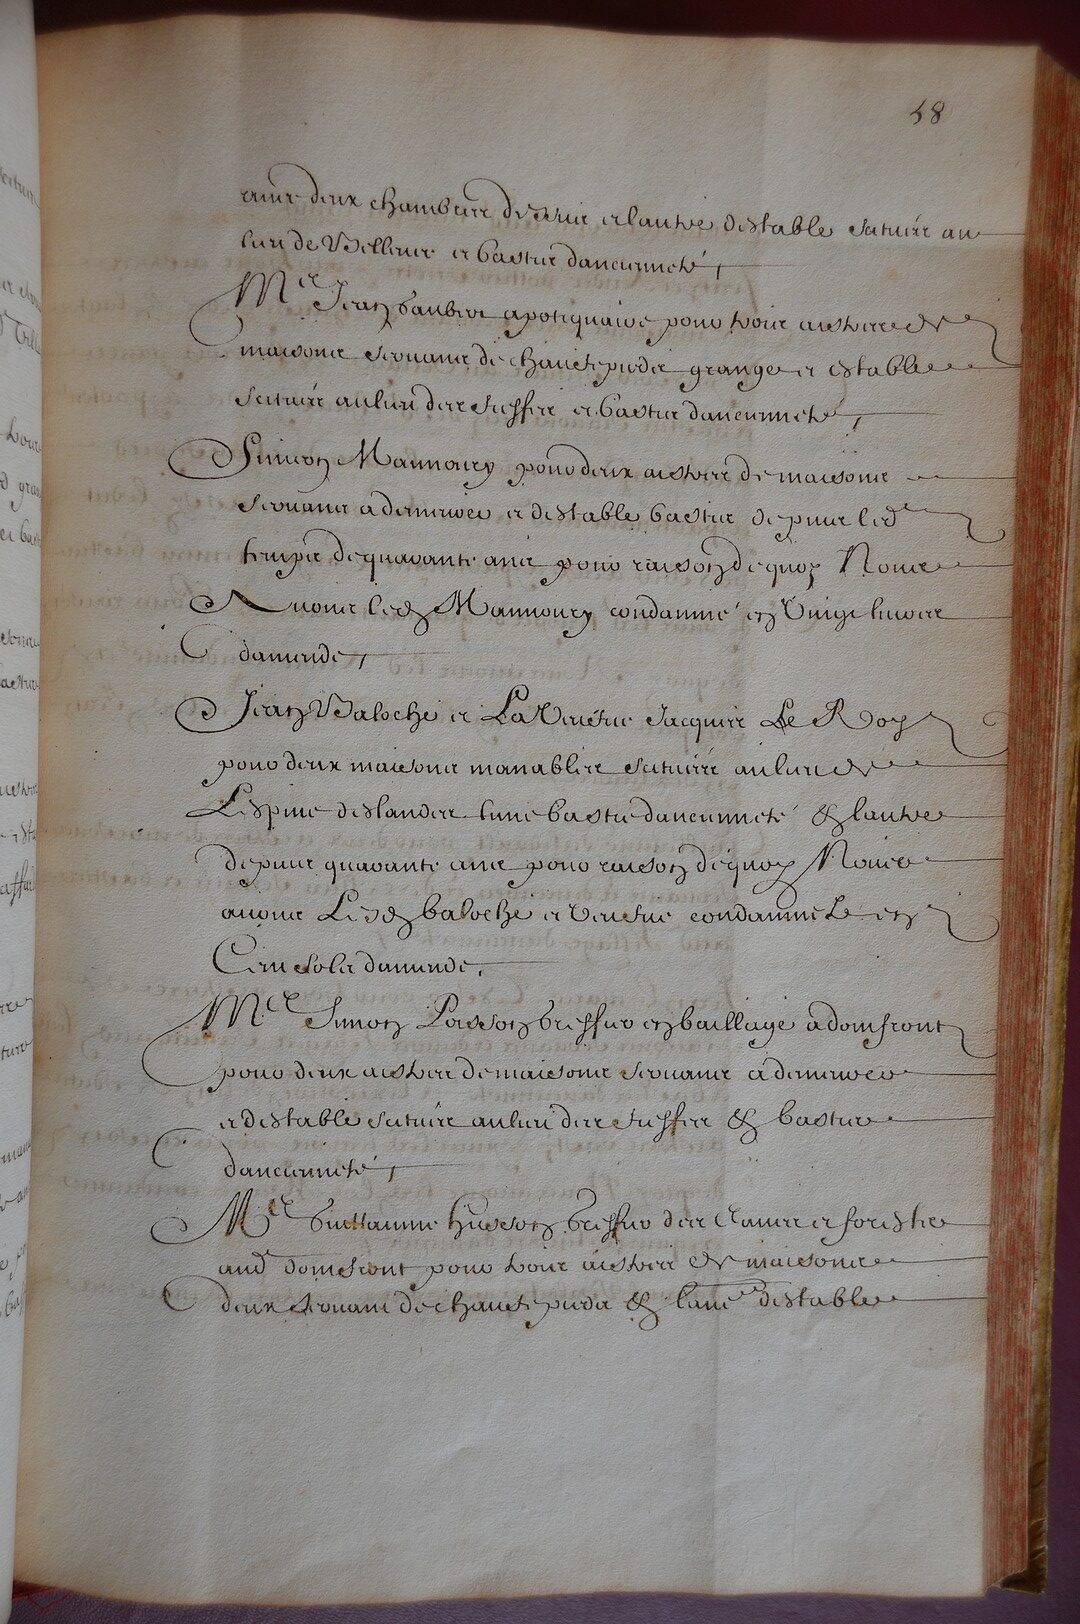 58
avec deux chambres dessus et lautre destable scituée au
lieu de Bellevue et bastie dancienneté,
Me Jean Gaubert apotiquaire pour trois aistres de
maisons servants de chaufepieds grange et estable
scituée au lieu des fieffes et bastie dancienneté,
Simeon Mannoury pour deux aistres de maisons
servants a demeure et destable bastie depuis led
temps de quarante ans pour raison de quoy Nous
Avons led Mannoury condamné en vingt livres
damende,
Jean Baloche et La veufue Jacques Le Roy
pour deux maisons manables scituées au lieu de
Lespine deslandes lune bastie dancienneté & lautre
depuis quarante ans pour raison de quoy Nous
avons Lesd baloche et veufue condamnés en
Cent sols damende,
Me Simon Poisson greffier en bailliage a domfront
pour deux aistres de maisons servants a demeure
et destable scitués au lieu des fieffes & bastie
dancienneté,
Me Guillaume Husson greffier des Eaues et forests
aud domfront pour trois aistres de maisons
deux servans de chaufepieds & lautre destable